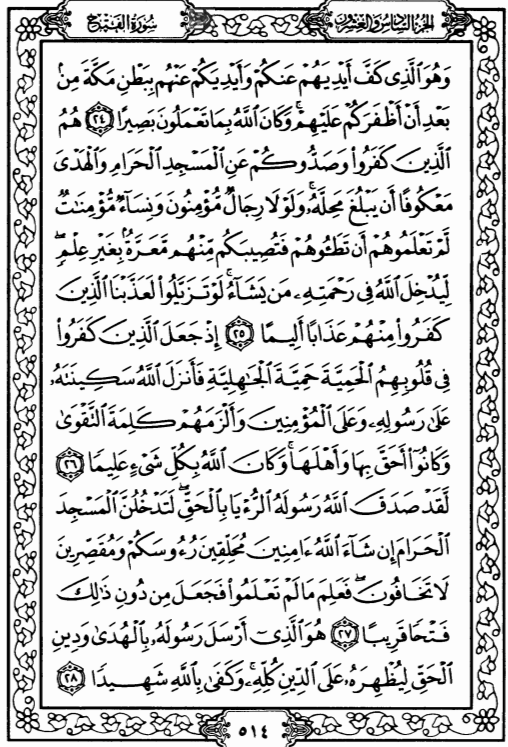 سُورَةُ الفَتْحِ
الجزء السادس والعشرون
وَهُوَ ٱلَّذِى كَفَّ أَيْدِيَهُمْ عَنكُمْ وَأَيْدِيَكُمْ عَنْهُم بِبَطْنِ مَكَّةَ مِنۢ
بَعْدِ أَنْ أَظْفَرَكُمْ عَلَيْهِمْ ۚ وَكَانَ ٱللَّهُ بِمَا تَعْمَلُونَ بَصِيرًا ٢٤ هُمُ
ٱلَّذِينَ كَفَرُوا۟ وَصَدُّوكُمْ عَنِ ٱلْمَسْجِدِ ٱلْحَرَامِ وَٱلْهَدْىَ
مَعْكُوفًا أَن يَبْلُغَ مَحِلَّهُۥ ۚ وَلَوْلَا رِجَالٌ مُّؤْمِنُونَ وَنِسَآءٌ مُّؤْمِنَـٰتٌ
لَّمْ تَعْلَمُوهُمْ أَن تَطَـُٔوهُمْ فَتُصِيبَكُم مِّنْهُم مَّعَرَّةٌۢ بِغَيْرِ عِلْمٍ ۖ
لِّيُدْخِلَ ٱللَّهُ فِى رَحْمَتِهِۦ مَن يَشَآءُ ۚ لَوْ تَزَيَّلُوا۟ لَعَذَّبْنَا ٱلَّذِينَ
كَفَرُوا۟ مِنْهُمْ عَذَابًا أَلِيمًا ٢٥ إِذْ جَعَلَ ٱلَّذِينَ كَفَرُوا۟
فِى قُلُوبِهِمُ ٱلْحَمِيَّةَ حَمِيَّةَ ٱلْجَـٰهِلِيَّةِ فَأَنزَلَ ٱللَّهُ سَكِينَتَهُۥ
عَلَىٰ رَسُولِهِۦ وَعَلَى ٱلْمُؤْمِنِينَ وَأَلْزَمَهُمْ كَلِمَةَ ٱلتَّقْوَىٰ
وَكَانُوٓا۟ أَحَقَّ بِهَا وَأَهْلَهَا ۚ وَكَانَ ٱللَّهُ بِكُلِّ شَىْءٍ عَلِيمًا ٢٦
لَّقَدْ صَدَقَ ٱللَّهُ رَسُولَهُ ٱلرُّءْيَا بِٱلْحَقِّ ۖ لَتَدْخُلُنَّ ٱلْمَسْجِدَ
ٱلْحَرَامَ إِن شَآءَ ٱللَّهُ ءَامِنِينَ مُحَلِّقِينَ رُءُوسَكُمْ وَمُقَصِّرِينَ
لَا تَخَافُونَ ۖ فَعَلِمَ مَا لَمْ تَعْلَمُوا۟ فَجَعَلَ مِن دُونِ ذَٰلِكَ
فَتْحًا قَرِيبًا ٢٧ هُوَ ٱلَّذِىٓ أَرْسَلَ رَسُولَهُۥ بِٱلْهُدَىٰ وَدِينِ
ٱلْحَقِّ لِيُظْهِرَهُۥ عَلَى ٱلدِّينِ كُلِّهِۦ ۚ وَكَفَىٰ بِٱللَّهِ شَهِيدًا ٢٨
٥١٤